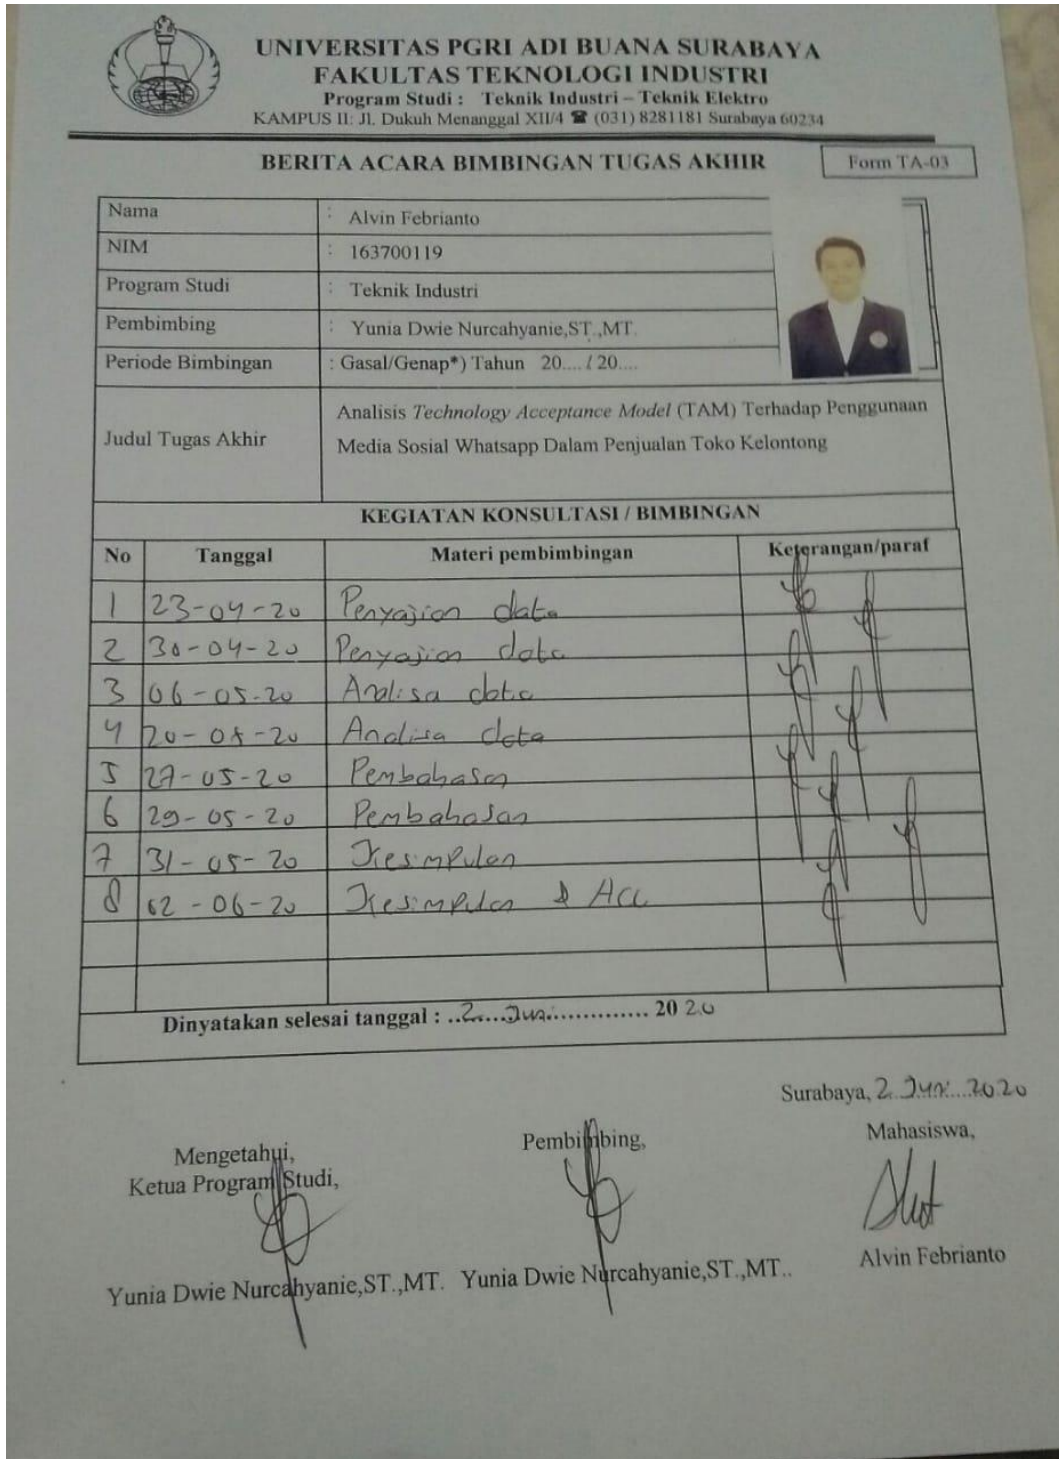 UNIVERSITAS PGRI ADI BUANA SURABAYA
FAKULTAS TEKNOLOGI INDUSTRI
Program Studi : Teknik Industri – Teknik Elektro
KAMPUS II: Jl. Dukuh Menanggal XII/4 ☎ (031) 8281181 Surabaya 60234
BERITA ACARA BIMBINGAN TUGAS AKHIR
Form TA-03
Nama : Alvin Febrianto
NIM : 163700119
Program Studi : Teknik Industri
Pembimbing : Yunia Dwie Nurcahyanie,ST.,MT.
Periode Bimbingan : Gasal/Genap*) Tahun 20.... / 20....
Judul Tugas Akhir
Analisis Technology Acceptance Model (TAM) Terhadap Penggunaan
Media Sosial Whatsapp Dalam Penjualan Toko Kelontong
KEGIATAN KONSULTASI / BIMBINGAN
No Tanggal Materi pembimbingan Keterangan/paraf
1 23-04-20 Penyajian data
2 30-04-20 Penyajian data
3 06-05-20 Analisa data
4 20-05-20 Analisa data
5 27-05-20 Pembahasan
6 29-05-20 Pembahasan
7 31-05-20 Kesimpulan
8 02-06-20 Kesimpulan & Acc
Dinyatakan selesai tanggal : ..2....Juni.............. 20 20
Surabaya, 2 Juni 2020
Mengetahui,
Ketua Program Studi,
Yunia Dwie Nurcahyanie,ST.,MT.
Pembimbing,
Yunia Dwie Nurcahyanie,ST.,MT..
Mahasiswa,
Alvin Febrianto